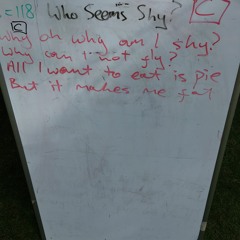 =118 Who Seems Shy? C
C
Why oh why am I shy?
Why can I not fly?
All I want to eat is pie
But it makes me fat